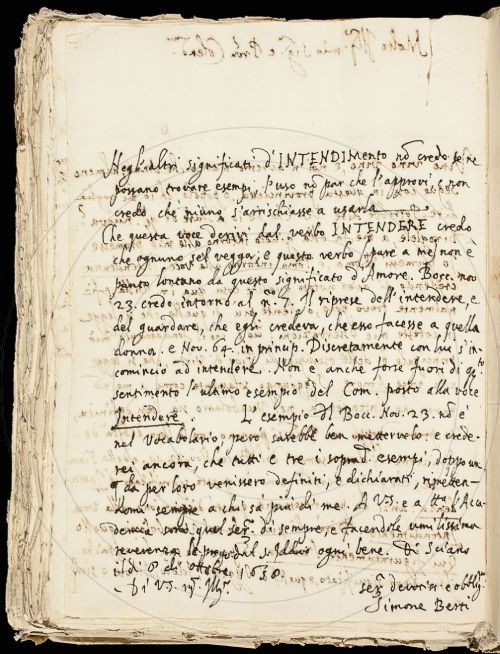 Negl'altri significati d'INTENDIMento nō credo se ne
possano trovare esempi, l'uso nō par che l'approvi, e non
credo che niuno s'arrischiasse a usarla
Che questa voce derivi dal verbo INTENDERE credo
che ognuno sel vegga; e questo verbo pare a me, non è
punto lontano da questo significato d'Amore. Bocc. nov
23. credo intorno al n. 7. Il riprese dell'intendere, e
del guardare, che egli credeva, che esso facesse a quella
donna. e Nov. 64. in princip. Discretamente con lui s'in
comincio ad intendere. Non è anche forse fuori di qto
sentimento l'ultimo esempio del Com. posto alla voce
Intendere. L'esempio dl Bocc. Nov. 23. nō è
nel Vocabolario, però sarebbe ben mettervelo: e crede-
rei ancora, che tutti e tre i sopradi esempi, doppo un
da per loro venissero definiti, e dichiarati, rimetten-
domi sempre a chi sa più di me. A VS. e a tta l'Acca-
demia sono quel ser. di sempre, e facendole umilissima
reverenza le prego dal S. Iddio ogni bene. Di Sciano
il dì 8 di ottobre 1658.
Di VS. Ill.
ser. devotiss. e obblig.
Simone Berti